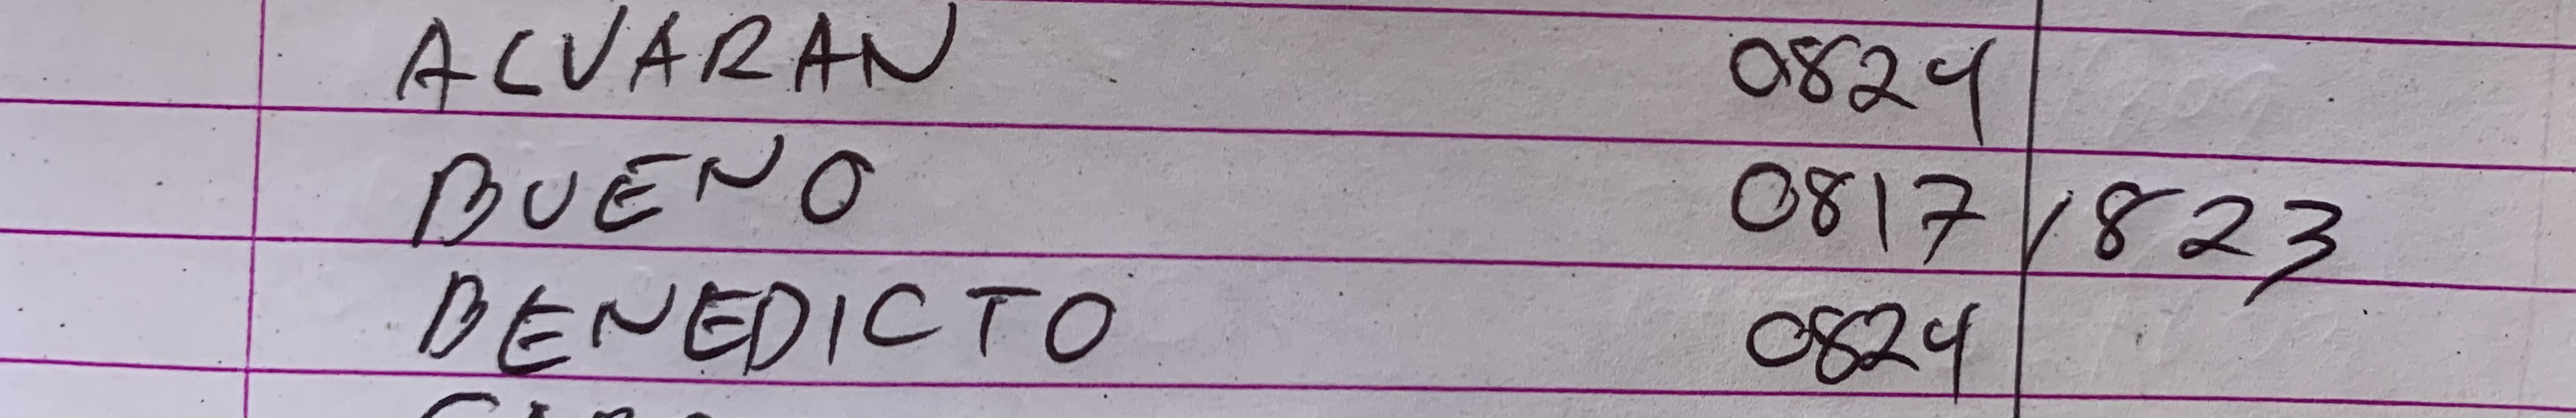 ALVARAN 0824
BUENO 0817 1823
BENEDICTO 0824